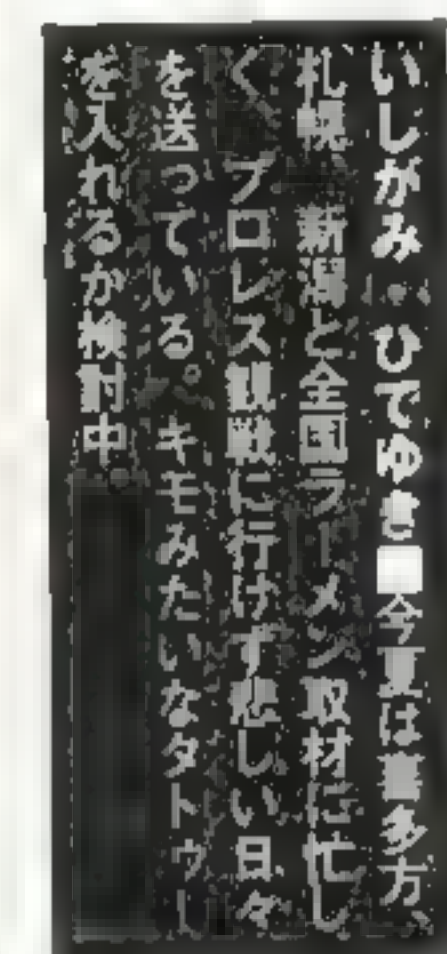 いしがみ・ひでゆき■今夏は喜多方、
札幌、新潟と全国ラーメン取材に忙し
く、プロレス観戦に行けず悲しい日々
を送っている。キモみたいなタトゥー
を入れるか検討中。